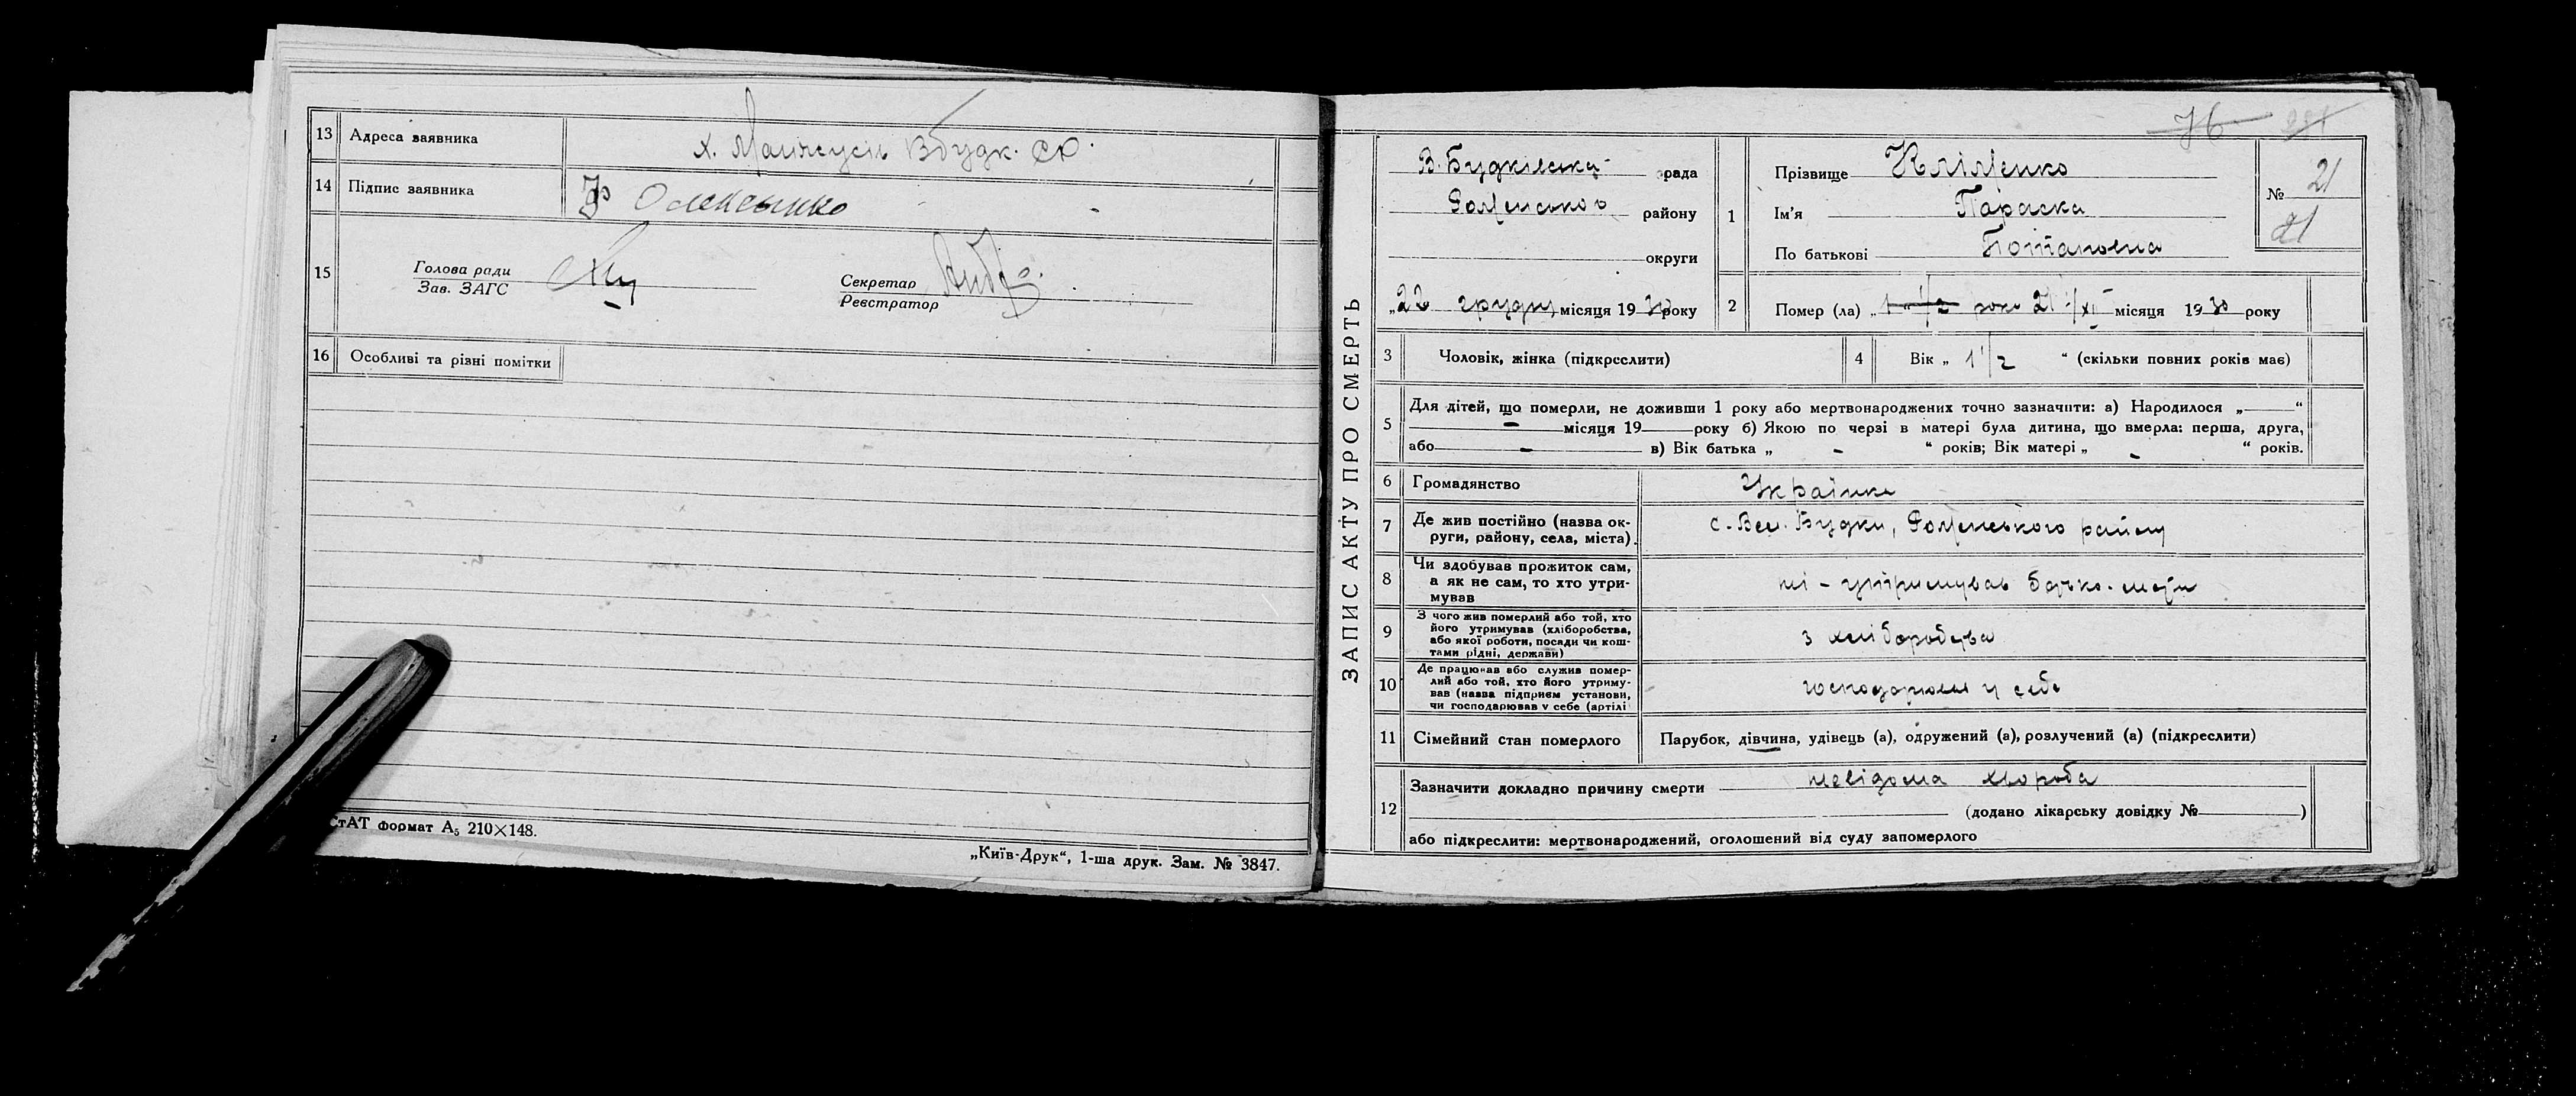 13 Адреса заявника х. Вбудк. СР.
14 Підпис заявника Олексенко
15 Голова ради
Зав. ЗАГС
Секретар
Реєстратор
16 Особливі та різні помітки
СтАТ формат А₅ 210×148.
„Київ-Друк“, 1-ша друк. Зам. № 3847.
ЗАПИС АКТУ ПРО СМЕРТЬ
76
В. Будківська рада
Роменсько о району
округи
„22 грудня місяця 1930 року
1 Прізвище Кліменко
Ім'я Параска
По батькові Потаповна
№ 21
21
2 Помер (ла) „ 1 1/2 роки 21/XII місяця 1930 року
3 Чоловік, жінка (підкреслити)
4 Вік „ 1 1/2 “ (скільки повних років має)
5 Для дітей, що померли, не доживши 1 року або мертвонароджених точно зазначити: а) Народилося „ “
- місяця 19 року б) Якою по черзі в матері була дитина, що вмерла: перша, друга,
або - в) Вік батька „ - “ років; Вік матері „ - “ років.
6 Громадянство Українка
7 Де жив постійно (назва округи, району, села, міста). с. Вел. Будки, Роменського району
8 Чи здобував прожиток сам,
а як не сам, то хто утри-
мував
ні - утримував батько-мати
9 З чого жив померлий або той, хто
його утримував (хліборобства,
або якої роботи, посади чи кош-
тами рідні, держави)
з хліборобства
10 Де працював або служив помер-
лий або той, хто його утриму-
вав (назва підприєм установи,
чи господарював у себе (артілі
господарювал у себе
11 Сімейний стан померлого Парубок, дівчина, удівець (а), одружений (а), розлучений (а) (підкреслити)
12 Зазначити докладно причину смерти невідома хвороба
(додано лікарську довідку № )
або підкреслити: мертвонароджений, оголошений від суду запомерлого